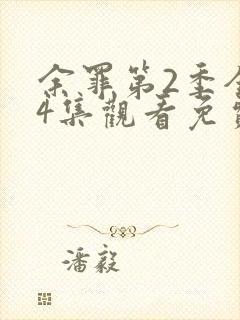 余罪第2季全
4集觀看免費
潘毅